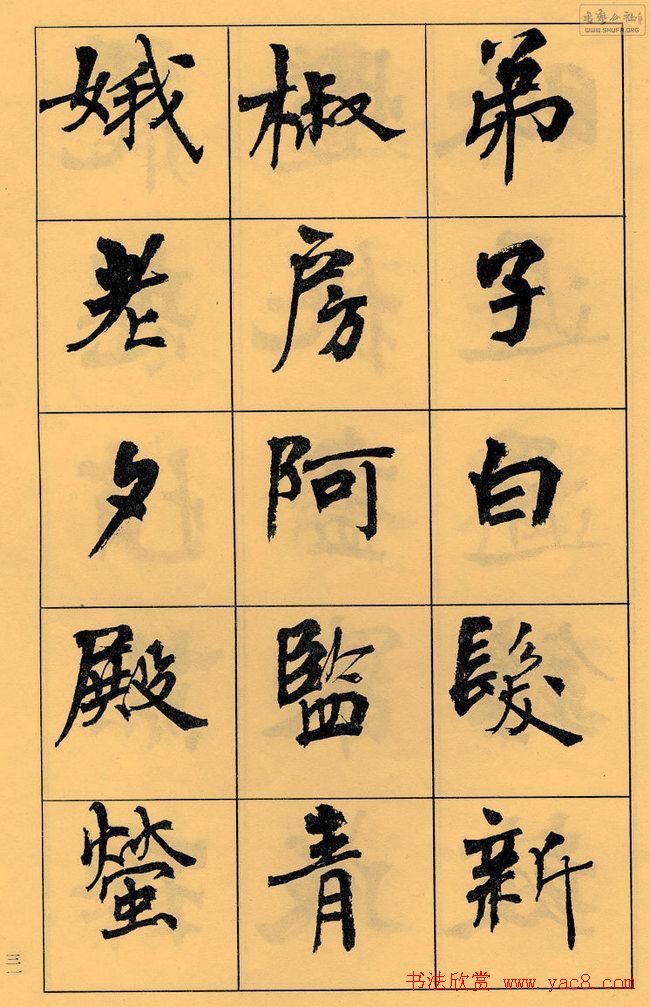 弟子白髮新
椒房阿監青
娥老夕殿螢
三一
书法欣赏 www.yac8.com
WWW.SHUFA.ORG